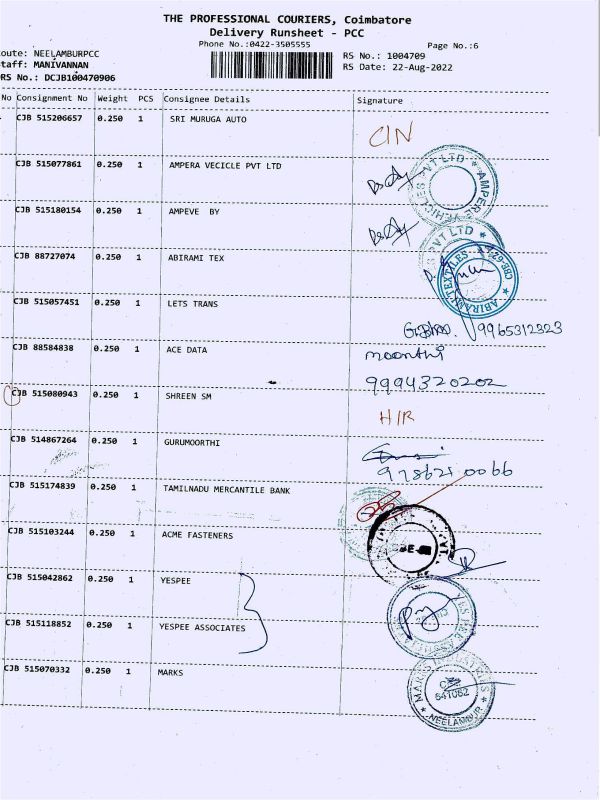 THE PROFESSIONAL COURIERS, Coimbatore
Delivery Runsheet - PCC
Phone No.:0422-3505555
Page No.:6
oute: NEELAMBURPCC
RS No.: 1004709
taff: MANIVANNAN
RS Date: 22-Aug-2022
DRS No.: DCJB100470906
No Consignment No Weight PCS Consignee Details Signature
CJB 515206657 0.250 1 SRI MURUGA AUTO
CIN
CJB 515077861 0.250 1 AMPERA VECICLE PVT LTD
AMPERE VEHICLES PVT LTD
CJB 515180154 0.250 1 AMPEVE BY
PVT LTD
CJB 88727074 0.250 1 ABIRAMI TEX
ABIRAMI TEXTILES
CJB 515057451 0.250 1 LETS TRANS
9965312323
CJB 88584838 0.250 1 ACE DATA
moonthi
9994320202
CJB 515080943 0.250 1 SHREEN SM
H/R
CJB 514867264 0.250 1 GURUMOORTHI
9786210066
CJB 515174839 0.250 1 TAMILNADU MERCANTILE BANK
CJB 515103244 0.250 1 ACME FASTENERS
CJB 515042862 0.250 1 YESPEE
CJB 515118852 0.250 1 YESPEE ASSOCIATES
CJB 515070332 0.250 1 MARKS
641062
NEELAMBUR